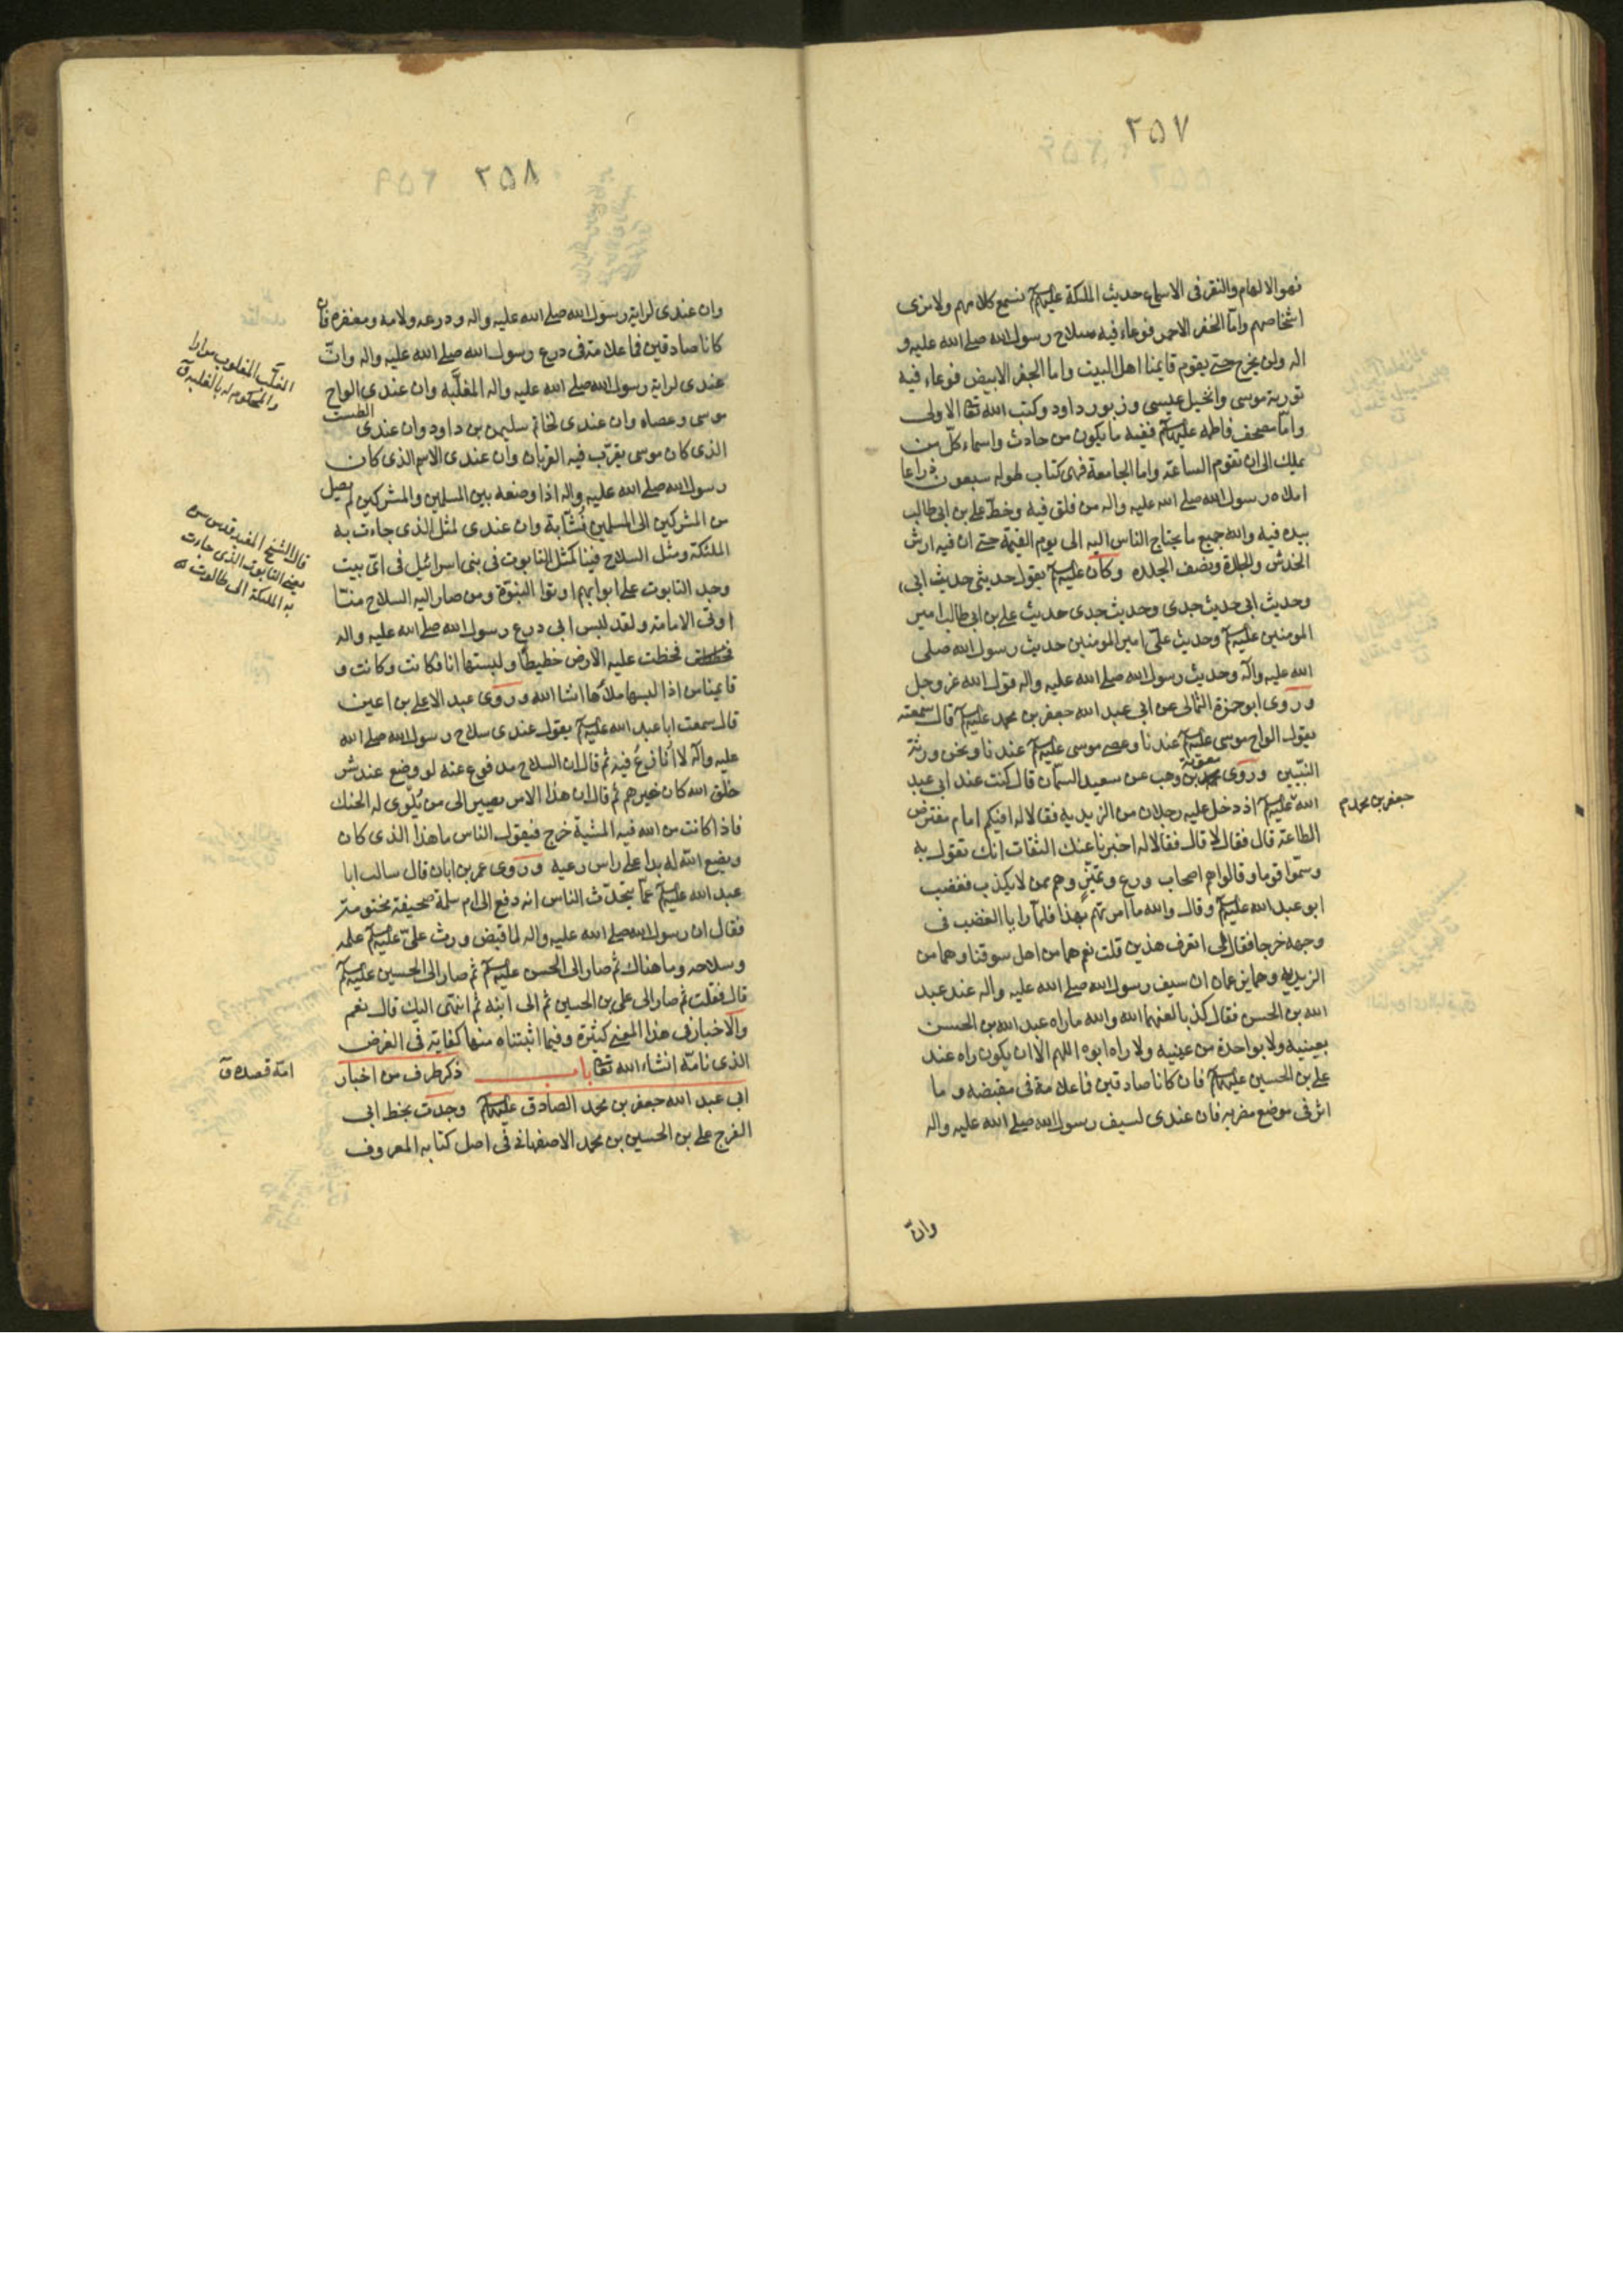 ٢٥٧
فهو الالهام والنقر فى الاسماع حديث الملئكة عليهم نسمع كلامهم ولا نرى
اشخاصهم واما الجفر الاحمر فوعاء فيه سلاح رسول الله صلى الله عليه و
اله ولن يخرج حتى يقوم قايمنا اهل البيت واما الجفر الابيض فوعاء فيه
تورية موسى وانجيل عيسى وزبور داود وكتب الله تعا الاولى
واما مصحف فاطمه عليها ففيه ما يكون من حادث واسماء كل من
يملك الى ان تقوم الساعة واما الجامعة فهى كتاب طوله سبعون ذراعا
املاه رسول الله صلى الله عليه واله من فلق فيه وخط على بن ابى طالب
بيده فيه والله جميع ما يحتاج الناس اليه الى يوم القيمة حتى ان فيه ارش
الخدش والجلدة ونصف الجلده وكان عليه يقول حديثى حديث ابى
وحديث ابى حديث جدى وحديث جدى حديث على بن ابى طالب امير
المومنين عليه وحديث على امير المومنين حديث رسول الله صلى
الله عليه وآله وحديث رسول الله صلى الله عليه واله قول الله عز وجل
وروى ابو حمزة الثمالى عن ابى عبد الله جعفر بن محمد عليه قال سمعته
يقول الواح موسى عليه عندنا وعصى موسى عليه عندنا ونحن ورثة
النبيين وروى معوية بن وهب عن سعيد السمان قال كنت عند ابى عبد
الله عليه اذ دخل عليه رجلان من الزيديه فقالا له افيكم امام مفترض
جعفر بن محمد م
الطاعة قال فقال لا قال فقالا له اخبرنا عنك الثقات انك تقول به
وسموا قوما وقالوا هم اصحاب ورع وتميز وهم ممن لا يكذب فغضب
ابو عبد الله عليه وقال والله ما امرتهم بهذا فلما رايا الغضب فى
وجهه خرجا فقال لى اتعرف هذين قلت نعم هما من اهل سوقنا وهما من
الزيديه وهما يزعمان ان سيف رسول الله صلى الله عليه واله عند عبد
الله بن الحسن فقال كذبا لعنهما الله والله ما راه عبد الله بن الحسن
بعينيه ولا بواحدة من عينيه ولا راه ابوه اللهم الا ان يكون راه عند
على بن الحسين عليهما فان كانا صادقين فما علامة فى مقبضه وما
اثر فى موضع مضربه فان عندى لسيف رسول الله صلى الله عليه واله
وان
٢٥٨
وان عندى لراية رسول الله صلى الله عليه واله ودرعه ولامة ومغفره فان
كانا صادقين فما علامة فى درع رسول الله صلى الله عليه واله وان
عندى لراية رسول الله صلى الله عليه واله المغلبه وان عندى الواح
المغلب المغلوب مرارا
والمحكوم له بالغلبة ق
موسى وعصاه وان عندى لخاتم سليمن بن داود وان عندى الطست
الذى كان موسى يقرب فيه القربان وان عندى الاسم الذى كان
رسول الله صلى الله عليه واله اذا وضعه بين المسلمين والمشركين لم يصل
من المشركين الى المسلمين نشابة وان عندى لمثل الذى جاءت به
الملئكة ومثل السلاح فينا كمثل التابوت فى بنى اسرائيل فى اى بيت
قال الشيخ المفيد قدس سره
يعنى التابوت الذى جاءت
به الملئكة الى طالوت
وجد التابوت على ابوابهم اوتوا النبوة ومن صار اليه السلاح منا
اوتى الامامة ولقد لبس ابى درع رسول الله صلى الله عليه واله
فخطت عليه الارض خطيطا ولبستها انا فكانت وكانت و
قايمنا من اذا لبسها ملأها انشا الله وروى عبد الاعلى بن اعين
قال سمعت ابا عبد الله عليه يقول عندى سلاح رسول الله صلى الله
عليه وآله لا انازع فيه ثم قال ان السلاح مدفوع عنه لو وضع عند شر
خلق الله كان خيرهم ثم قال ان هذا الامر يصير الى من يلوى له الحنك
فاذا كانت من الله فيه المشية خرج فيقول الناس ما هذا الذى كان
ويضع الله له يدا على راس رعيه وروى عمر بن ابان قال سالت ابا
عبد الله عليه عما يتحدث الناس انه دفع الى ام سلمة صحيفة مختومة
فقال ان رسول الله صلى الله عليه واله لما قبض ورث على عليه علمه
وسلاحه وما هناك ثم صار الى الحسن عليه ثم صار الى الحسين عليه
قال فقلت ثم صار الى على بن الحسين ثم الى ابنه ثم انتهى اليك قال نعم
والاخبار فى هذا المعنى كثيرة وفيما اثبتناه منها كفاية فى الغرض
الذى نامه انشاء الله تعا باب ذكر طرف من اخبار
امه قصده ق
ابى عبد الله جعفر بن محمد الصادق عليهما وجدت بخط ابى
الفرج على بن الحسين بن محمد الاصفهانى فى اصل كتابه المعروف